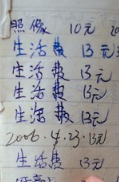 照像 10元
生活费 13元
生活费 13元
生活费 13元
生活费 13元
2006.4.23.13元
生活费 13元